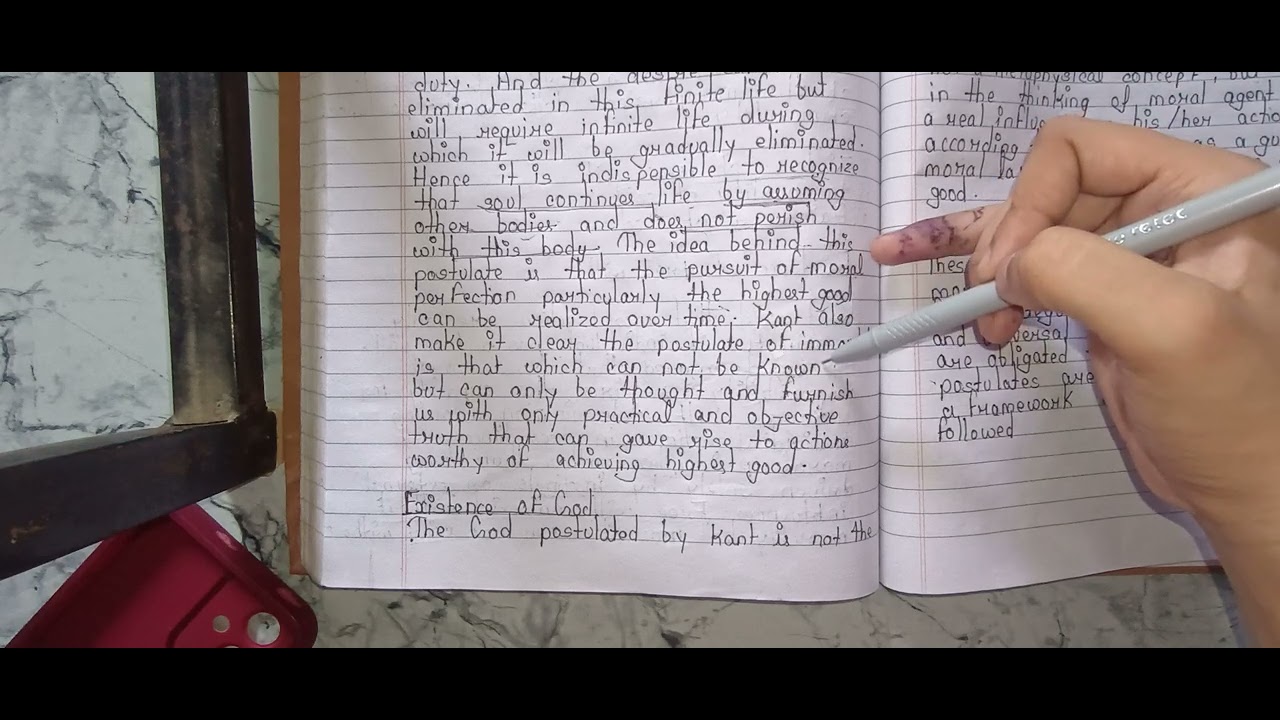 duty. And the desire
eliminated in this finite life but
will require infinite life during
which it will be gradually eliminated.
Hence it is indispensible to recognize
that soul continues life by assuming
other bodies and does not perish
with this body. The idea behind this
postulate is that the pursuit of moral
perfection particularly the highest good
can be realized over time. Kant also
make it clear the postulate of
is that which can not be known
but can only be thought and furnish
us with only practical and objective
truth that can gave rise to actions
worthy of achieving highest good.
Existence of God
The God postulated by Kant is not the
metaphysical concept, but
in the thinking of moral agent
a real his/her
according as a
moral
good.
and
are obligated
postulates are
a framework
followed